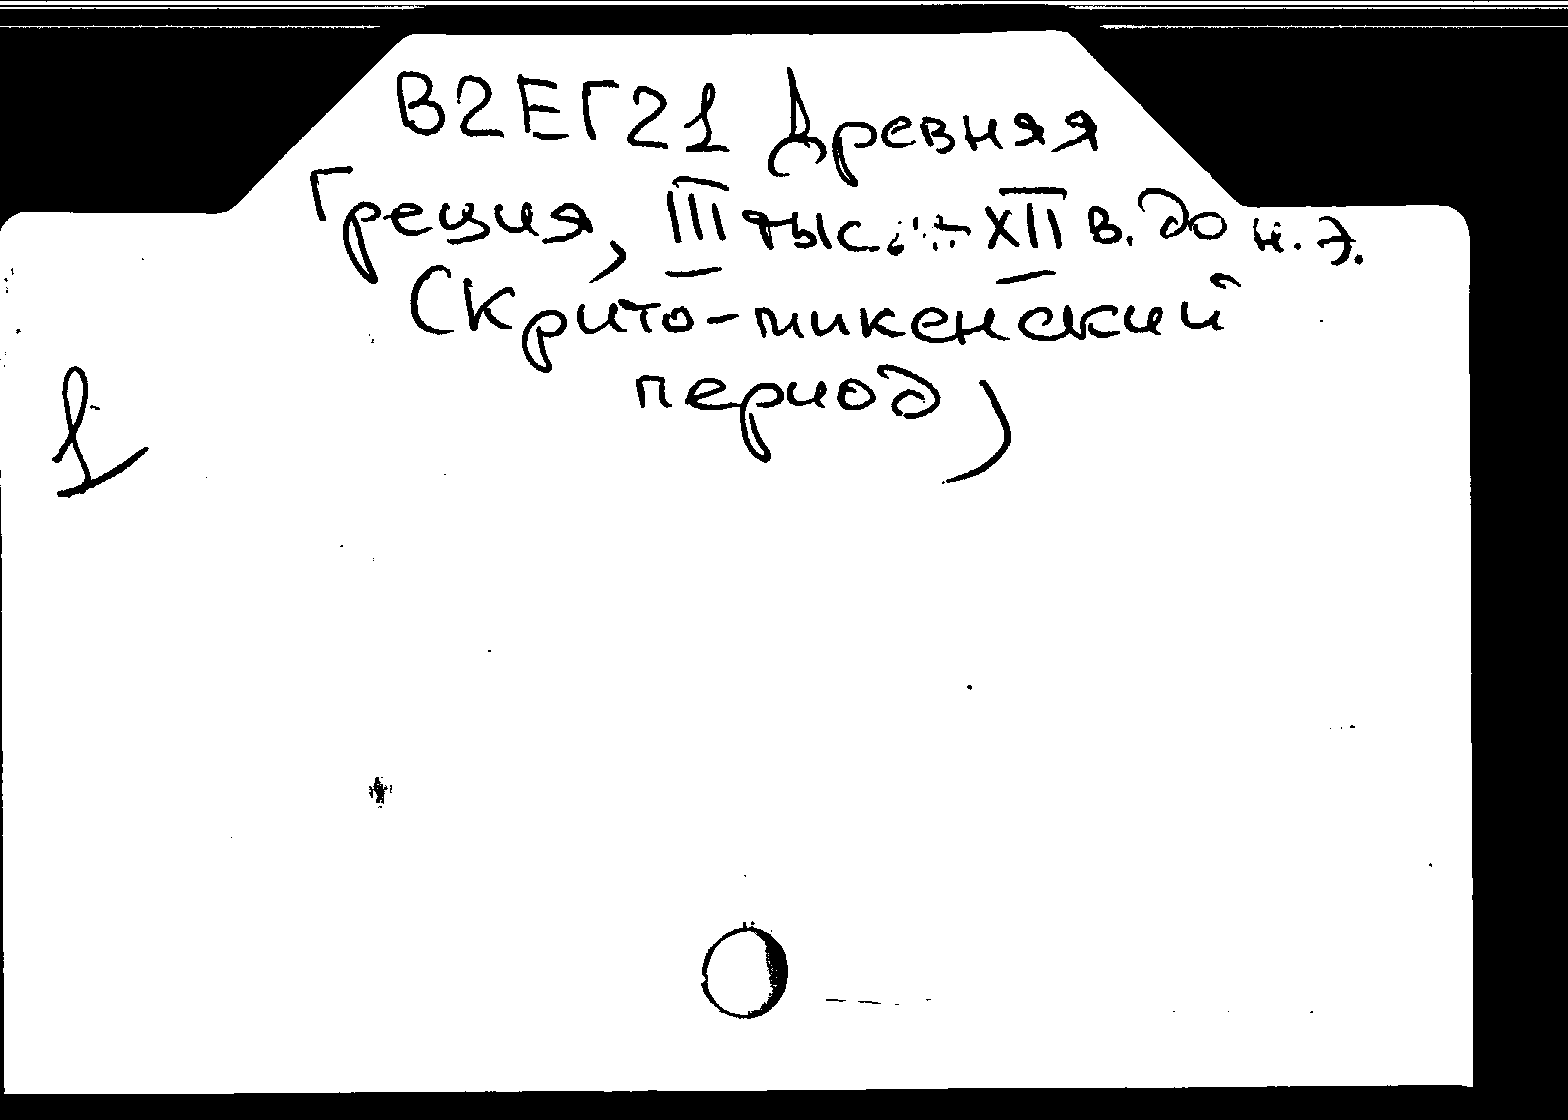 В2ЕГ21 Древняя
Греция, III тыс. - XII в. до н. э.
(Крито-микенский
период)
1